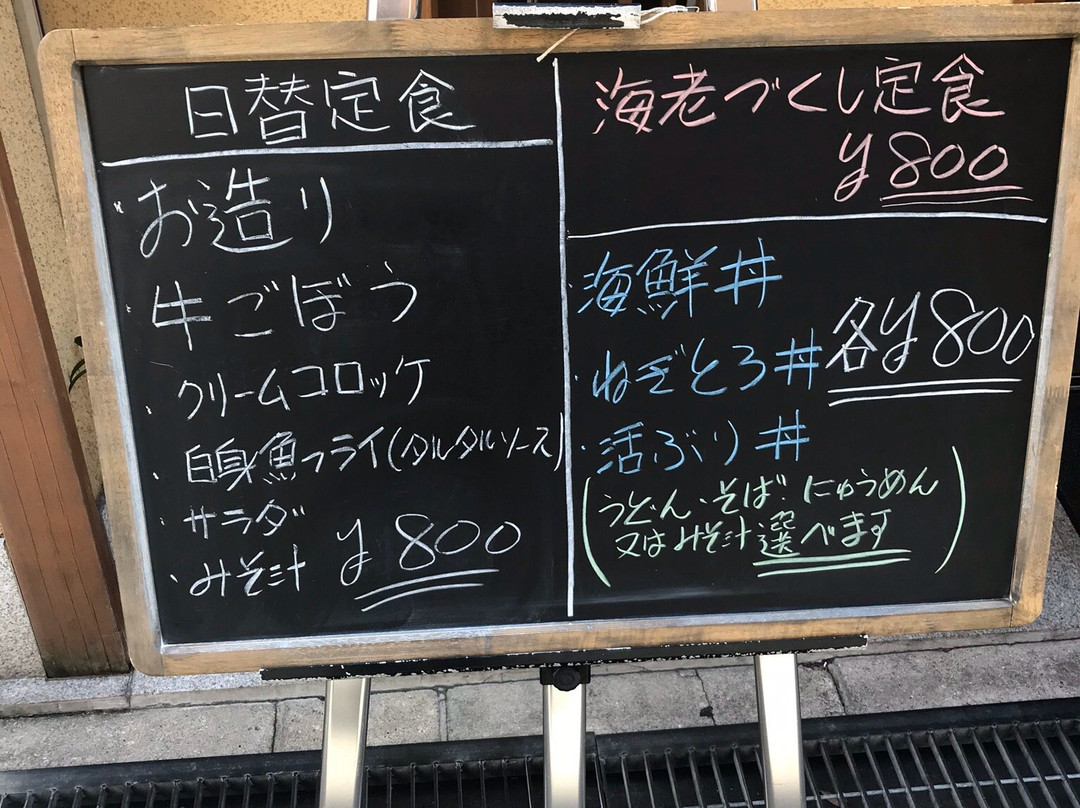 日替定食
・お造り
・牛ごぼう
・クリームコロッケ
・白身魚フライ(タルタルソース)
・サラダ
・みそ汁 ¥800
海老づくし定食
¥800
・海鮮丼
・ねぎとろ丼 各¥800
・活ぶり丼
(うどん・そば・にゅうめん
又はみそ汁選べます)